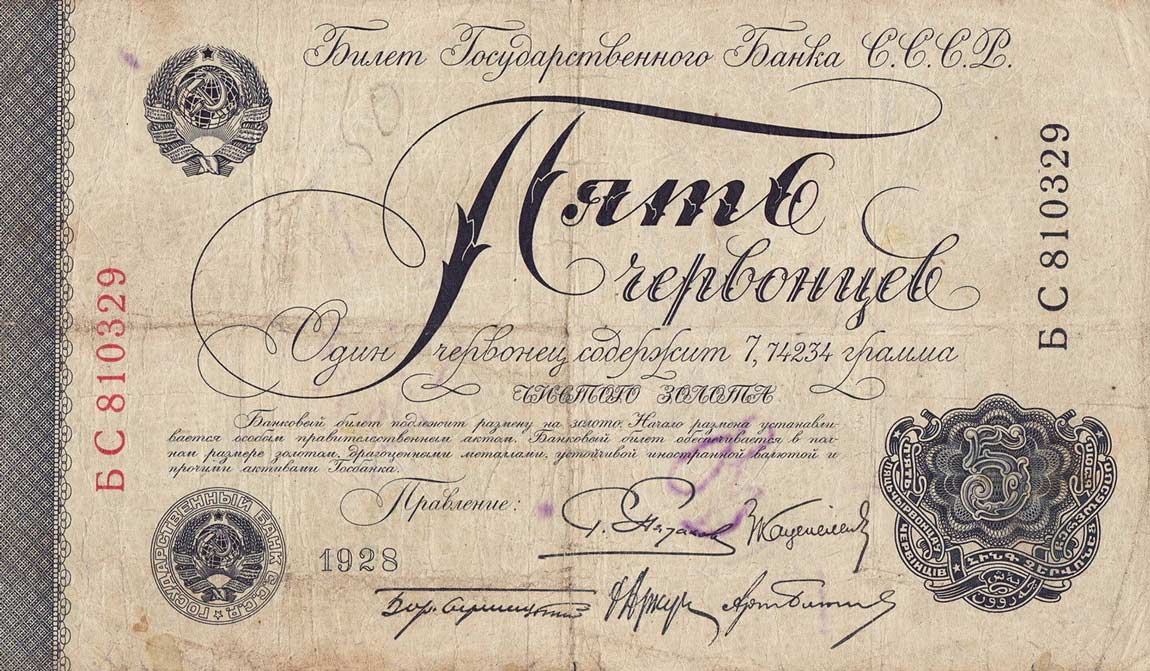 Билет Государственного Банка С.С.С.Р.
Пять
червонцев
Один червонец содержит 7,74234 грамма
ЧИСТОГО ЗОЛОТА
Банковый билет подлежит размену на золото. Начало размена устанавли-
вается особым правительственным актом. Банковый билет обеспечивается в пол-
ном размере золотом, драгоценными металлами, устойчивой иностранной валютой и
прочими активами Госбанка.
Правление:
1928
БС 810329
БС 810329
ГОСУДАРСТВЕННЫЙ БАНК С.С.С.Р.
5
ՀԻՆԳ ՉԵՐՎՈՆԵՑ